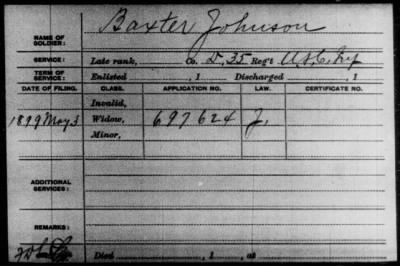 NAME OF SOLDIER: Baxter Johnson
SERVICE: Late rank, Co. D, 35 Reg't U.S.C. Inf
TERM OF SERVICE: Enlisted , 1 Discharged , 1
DATE OF FILING. CLASS. APPLICATION NO. LAW. CERTIFICATE NO.
Invalid,
1899 May 3 Widow, 697624 J.
Minor,
ADDITIONAL SERVICES:
REMARKS:
Died , 1 , at